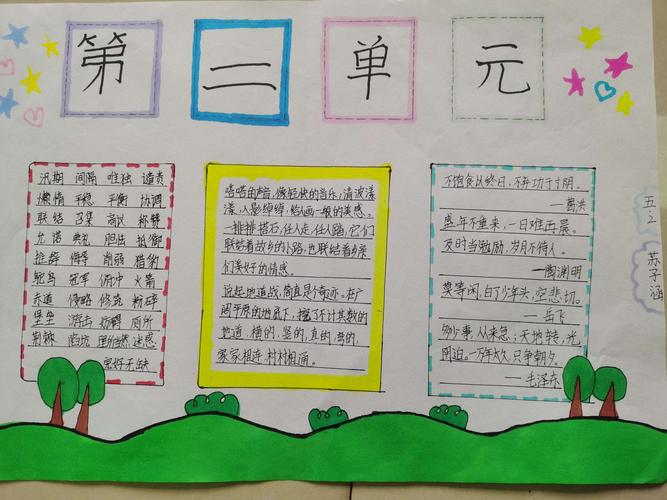 第二单元
汛期 间隔 唯独 谴责
懒惰 平稳 平衡 协调
联结 召集 商议 称赞
允诺 典礼 胆怯 抵御
推辞 侮辱 削弱 猎豹
鸵鸟 冠军 俯冲 火箭
赤道 侵略 修筑 粉碎
堡垒 游击 妨碍 厕所
荆棘 陷坑 迷惑
完好无缺
嗒嗒的声音,像轻快的音乐;清波漾
漾,人影绰绰,给人画一般的美感。
一排排搭石,任人走,任人踏,它们
联结着故乡的小路,也联结着乡亲
们美好的情感。
说起地道战,简直是个奇迹。在广
阔平原的地底下,挖了不计其数的
地道,横的,竖的,直的,弯的,
家家相连,村村相通。
不饱食以终日,不弃功于寸阴。
——葛洪
盛年不重来,一日难再晨。
及时当勉励,岁月不待人。
——陶渊明
莫等闲,白了少年头,空悲切。
——岳飞
多少事,从来急;天地转,光
阴迫。一万年太久,只争朝夕。
——毛泽东
五2
苏子涵